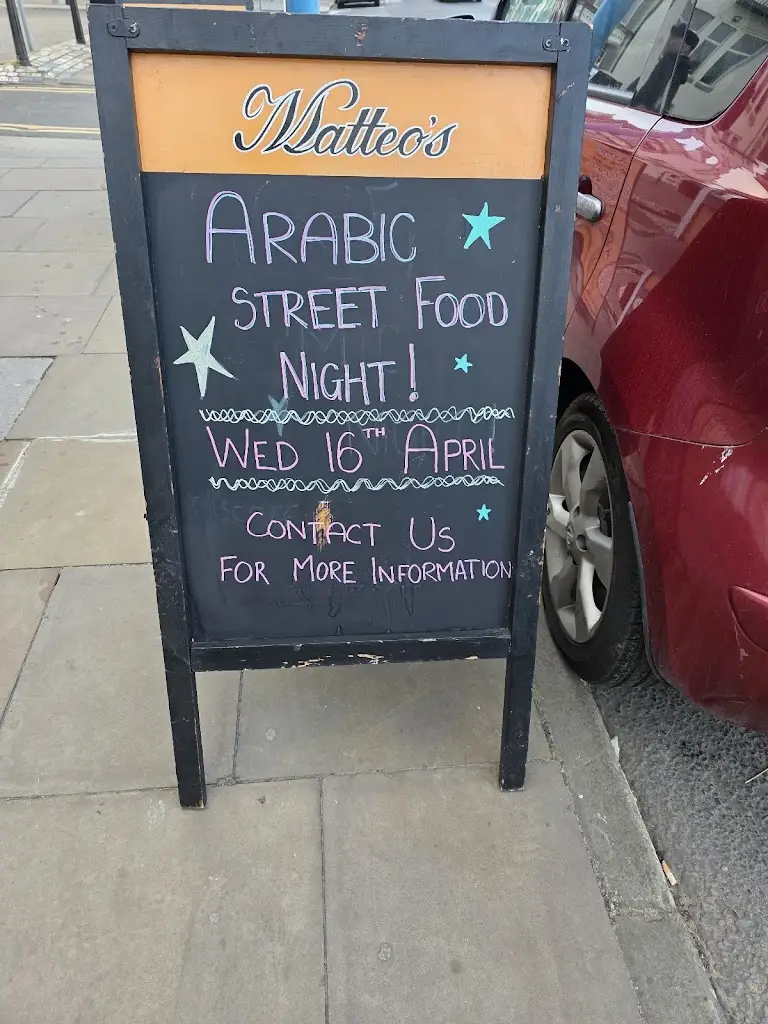 Matteo's
ARABIC
STREET FOOD
NIGHT!
WED 16TH APRIL
CONTACT US
FOR MORE INFORMATION